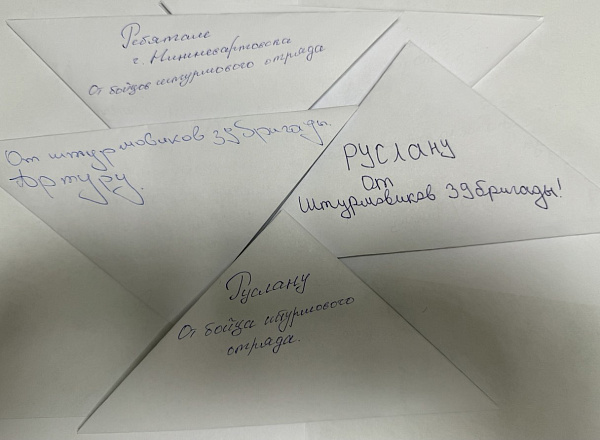 Ребятам
г. Нижневартовска
От бойцов штурмового отряда
От штурмовиков 39бригады.
Артуру.
РУСЛАНУ
От
Штурмовиков 39бригады!
Руслану
От бойца штурмового
отряда.